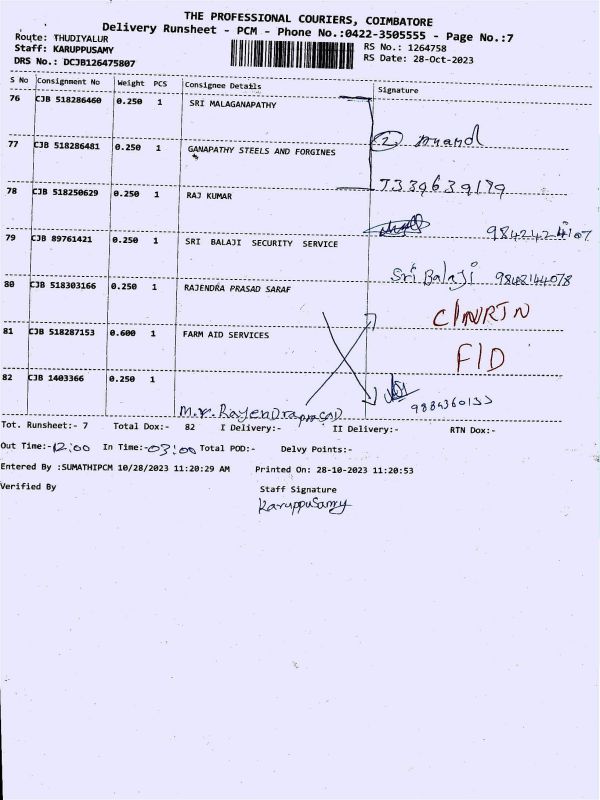 THE PROFESSIONAL COURIERS, COIMBATORE
Delivery Runsheet - PCM - Phone No.:0422-3505555 - Page No.:7
Route: THUDIYALUR
RS No.: 1264758
Staff: KARUPPUSAMY
RS Date: 28-Oct-2023
DRS No.: DCJB126475807
S No Consignment No Weight PCS Consignee Details Signature
76 CJB 518286460 0.250 1 SRI MALAGANAPATHY
77 CJB 518286481 0.250 1 GANAPATHY STEELS AND FORGINES
② Anand
7339639179
78 CJB 518250629 0.250 1 RAJ KUMAR
79 CJB 89761421 0.250 1 SRI BALAJI SECURITY SERVICE
Sri Balaji
80 CJB 518303166 0.250 1 RAJENDRA PRASAD SARAF
C/NRTN
81 CJB 518287153 0.600 1 FARM AID SERVICES
F/D
82 CJB 1403366 0.250 1
M.V. Rajendraprasad
Tot. Runsheet:- 7 Total Dox:- 82 I Delivery:- II Delivery:- RTN Dox:-
Out Time:-12:00 In Time:-03:00 Total POD:- Delvy Points:-
Entered By :SUMATHIPCM 10/28/2023 11:20:29 AM Printed On: 28-10-2023 11:20:53
Verified By Staff Signature
Karuppusamy